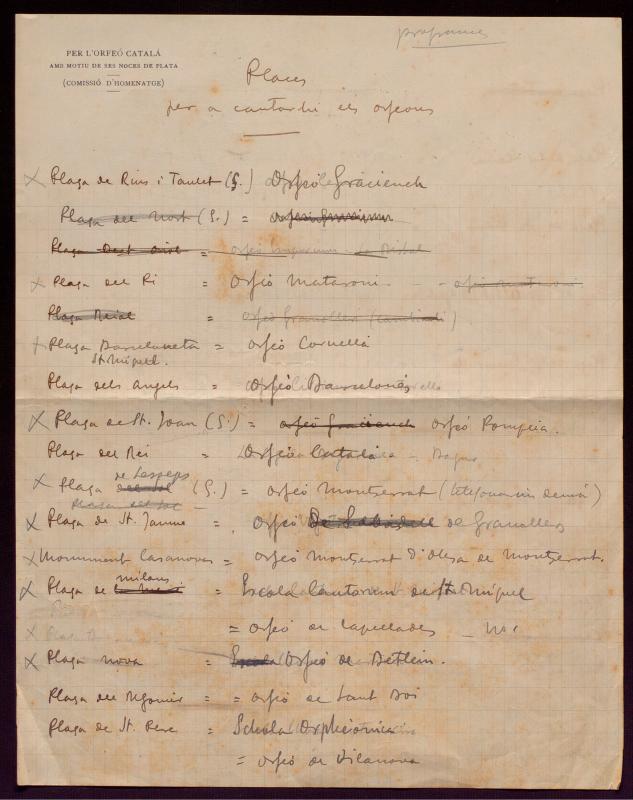 PER L'ORFEÓ CATALÁ
AMB MOTIU DE SES NOCES DE PLATA
(COMISSIÓ D'HOMENATGE)
programes
Places
per a cantarhi els orfeons
X Plaça de Rius i Taulet (G.) Orfeó Graciench
Plaça del Nort (G.) =
Plaça =
X Plaça del Pi = Orfeó Mataroní - orfeó mataroni
Plaça Reial = Orfeó Granollers
X Plaça Barceloneta = Orfeó Cornellà
St. Miquel.
Plaça dels Angels = Orfeó Barcelonés
X Plaça de St. Joan (G.) = orfeó Gracienchs Orfeó Pompeia.
Plaça del Rei = Orfeó Català
de Lesseps
X Plaça del Sol (G.) = orfeó Montserrat (telefonarnos demà)
Plaça del Sol
X Plaça de St. Jaume = Orfeó De Sabadell de Granollers
X Monument Casanova = Orfeó Montserrat d'Olesa de Montserrat.
milans
X Plaça de = Escola Cantorum de St. Miquel
X = Orfeó de Capellades
X Plaça nova = Escola Orfeó de Betlem.
Plaça del = = Orfeó de Sant Boi
Plaça de St. Pere = Schola Orpheonica
= Orfeó de Vilanova